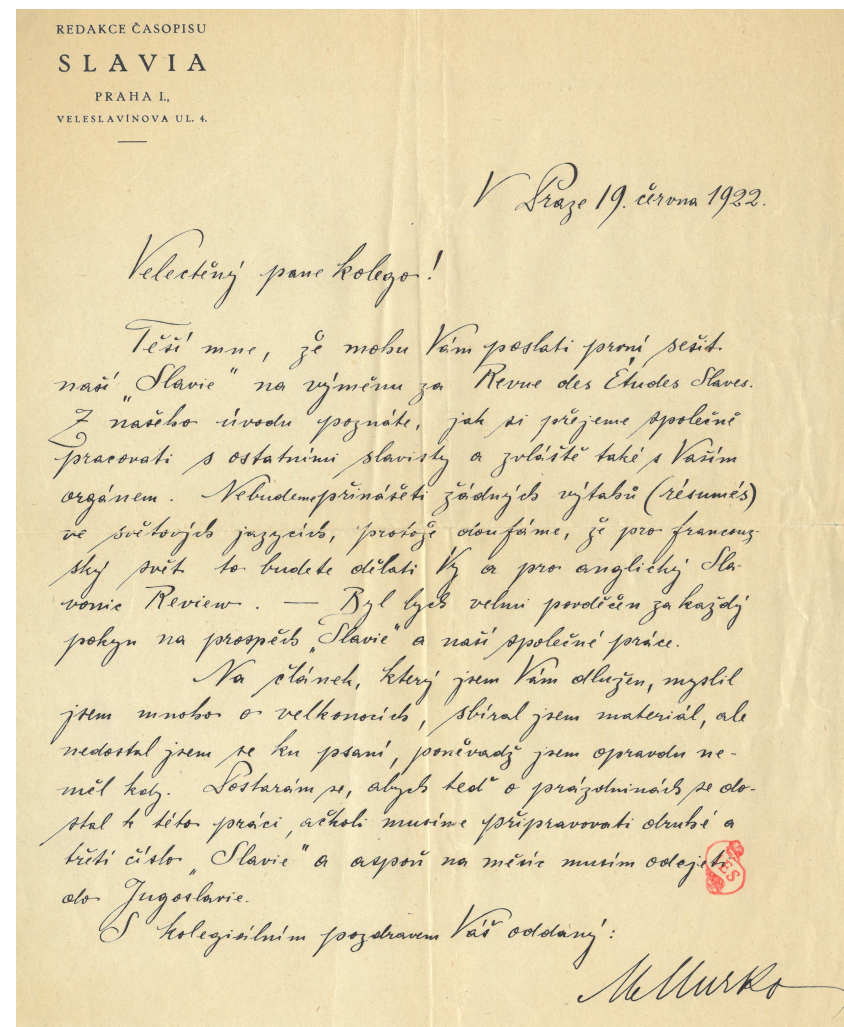 REDAKCE ČASOPISU
SLAVIA
PRAHA I.,
VELESLAVÍNOVA UL. 4.
V Praze 19. června 1922.
Velectěný pane kolego!
Těší mne, že mohu Vám poslati první sešit
naší „Slavie“ na výměnu za Revue des Études Slaves.
Z našeho úvodu poznáte, jak si přejeme společně
pracovati s ostatními slavisty a zvláště také s Vaším
orgánem. Nebudeme přinášeti žádných výtahů (résumés)
ve světových jazycích, protože doufáme, že pro francouz-
ský svět to budete dělati Vy a pro anglický Sla-
vonic Review. — Byl bych velmi povděčen za každý
pokyn na prospěch „Slavie“ a naší společné práce.
Na článek, který jsem Vám dlužen, myslil
jsem mnoho o velkonocích, sbíral jsem materiál, ale
nedostal jsem se ku psaní, poněvadž jsem opravdu ne-
měl kdy. Postarám se, abych teď o prázdninách se do-
stal k této práci, ačkoli musíme připravovati druhé a
třetí číslo „Slavie“ a aspoň na měsíc musím odejeti
do Jugoslavie.
S kolegiálním pozdravem Váš oddaný:
M Murko
IES